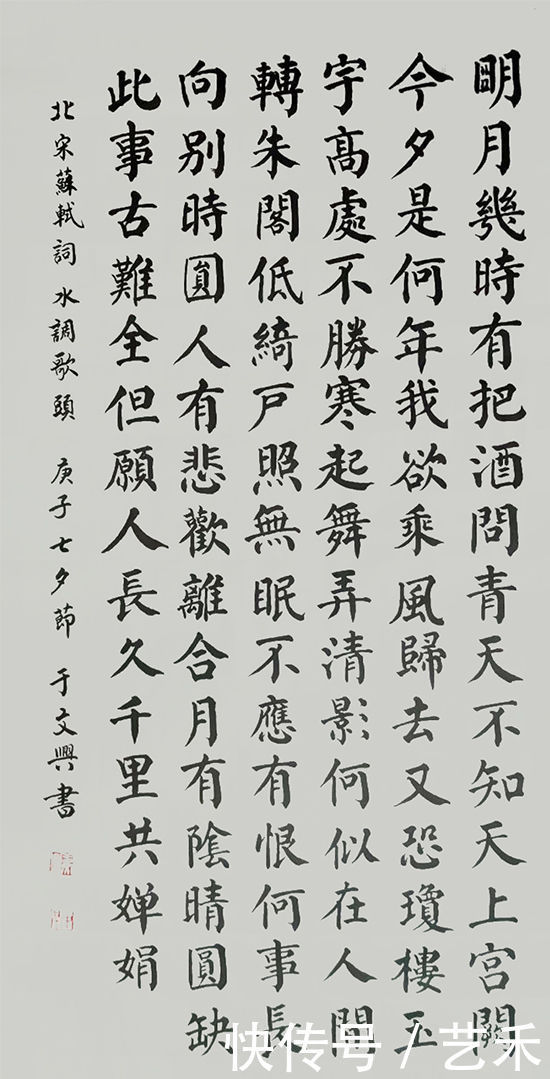 眀月幾時有把酒問青天不知天上宮闕
今夕是何年我欲乘風歸去又恐瓊樓玉
宇髙處不勝寒起舞弄清影何似在人間
轉朱閣低綺戶照無眠不應有恨何事長
向別時圓人有悲歡離合月有陰晴圓缺
此事古難全但願人長久千里共婵娟
北宋蘇軾詞 水調歌頭 庚子七夕節 于文興書
快传号 / 艺禾